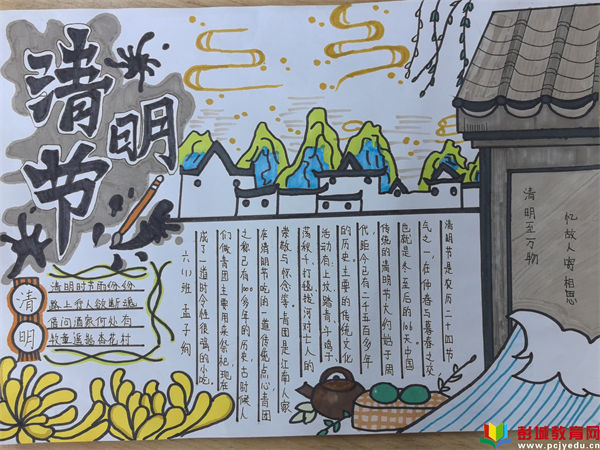 清明节
清明
清明时节雨纷纷
路上行人欲断魂
借问酒家何处有
牧童遥指杏花村
忆故人寄相思
清明至万物
清明节是农历二十四节
气之一在仲春与暮春之交
也就是冬至后的106天中国
传统的清明节大约始于周
代距今已有二千五百多年
的历史主要的传统文化
活动有上坟踏青斗鸡子
荡秋千打毯拔河对亡人的
崇敬与怀念等青团是江南人家
在清明节吃的一道传统点心青团
之称已有1000多年的历史古时候人
们做青团主要用来祭祀现在
成了一道时令性很强的小吃
六(1)班 孟子
彭城教育网
www.pcjyedu.cn